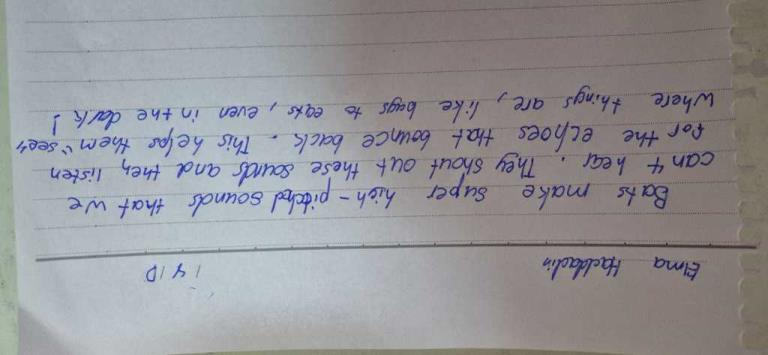 Elma Haddadin 14/D
Bats make super high-pitched sounds that we
can't hear. They shout out these sounds and then listen
for the echoes that bounce back. This helps them "see"
where things are, like bugs to eats, even in the dark!